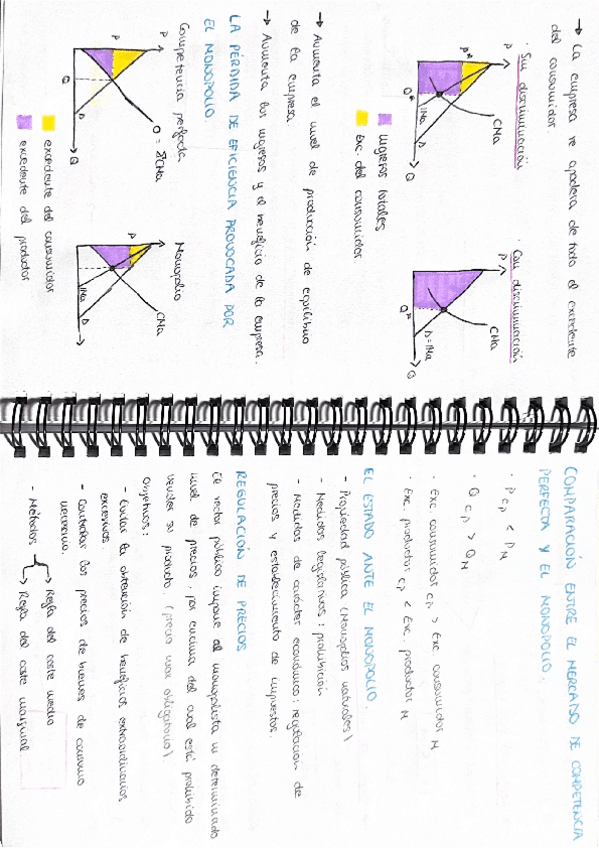 → La empresa se apodera de todo el excedente
del consumidor.
· Sin discriminación
P
P*
CMa
Q*
IMa
D
Q
· Con discriminación
P
CMa
Q*
D=IMa
Q
ingresos totales
Exc. del consumidor.
→ Aumenta el nivel de producción de equilibrio
de la empresa
→ Aumenta los ingresos y el beneficio de la empresa.
LA PÉRDIDA DE EFICIENCIA PROVOCADA POR
EL MONOPOLIO
Competencia perfecta
P
P
O = ΣCMa
Q
D
Q
Monopolio
P
CMa
IMa
D
excedente del consumidor
excedente del productor
COMPARACIÓN ENTRE EL MERCADO DE COMPETENCIA
PERFECTA Y EL MONOPOLIO.
· P cp < P M
· Q cp > Q M
· Exc. consumidor cp > Exc. consumidor M
· Exc. productor cp < Exc. productor M
EL ESTADO ANTE EL MONOPOLIO.
- Propiedad pública (Monopolios naturales)
- Medidas legislativas: prohibición
- Medidas de carácter económico: regulación de
precios y establecimiento de impuestos.
REGULACIÓN DE PRECIOS
El sector público impone al monopolista un determinado
nivel de precios, por encima del cual está prohibido
vender su producto. (precio max obligatorio).
Objetivos:
- Evitar la obtención de beneficios extraordinarios
excesivos.
- Controlar los precios de bienes de consumo
necesario.
- Métodos
Regla del coste medio
Regla del coste marginal